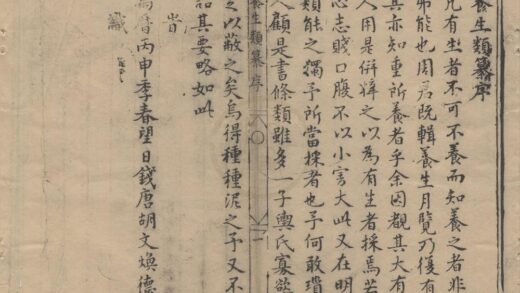 養生類纂序
凡有生者不可不養而知養之者非
弗能也周君既輯養生月覽乃復有
其亦知重所養者乎余因覩其大有
人用是併梓之以為有生者採焉若
心志賤口腹不以小害大此又在明
類能之獨予所當採者也予何敢瓚
人顧是書條類雖多一子輿氏寡欲
養生類纂序
之以蔽之矣烏得種種泥之予又不
其要略如此
皆
萬曆丙申季春望日錢唐胡文煥德
識